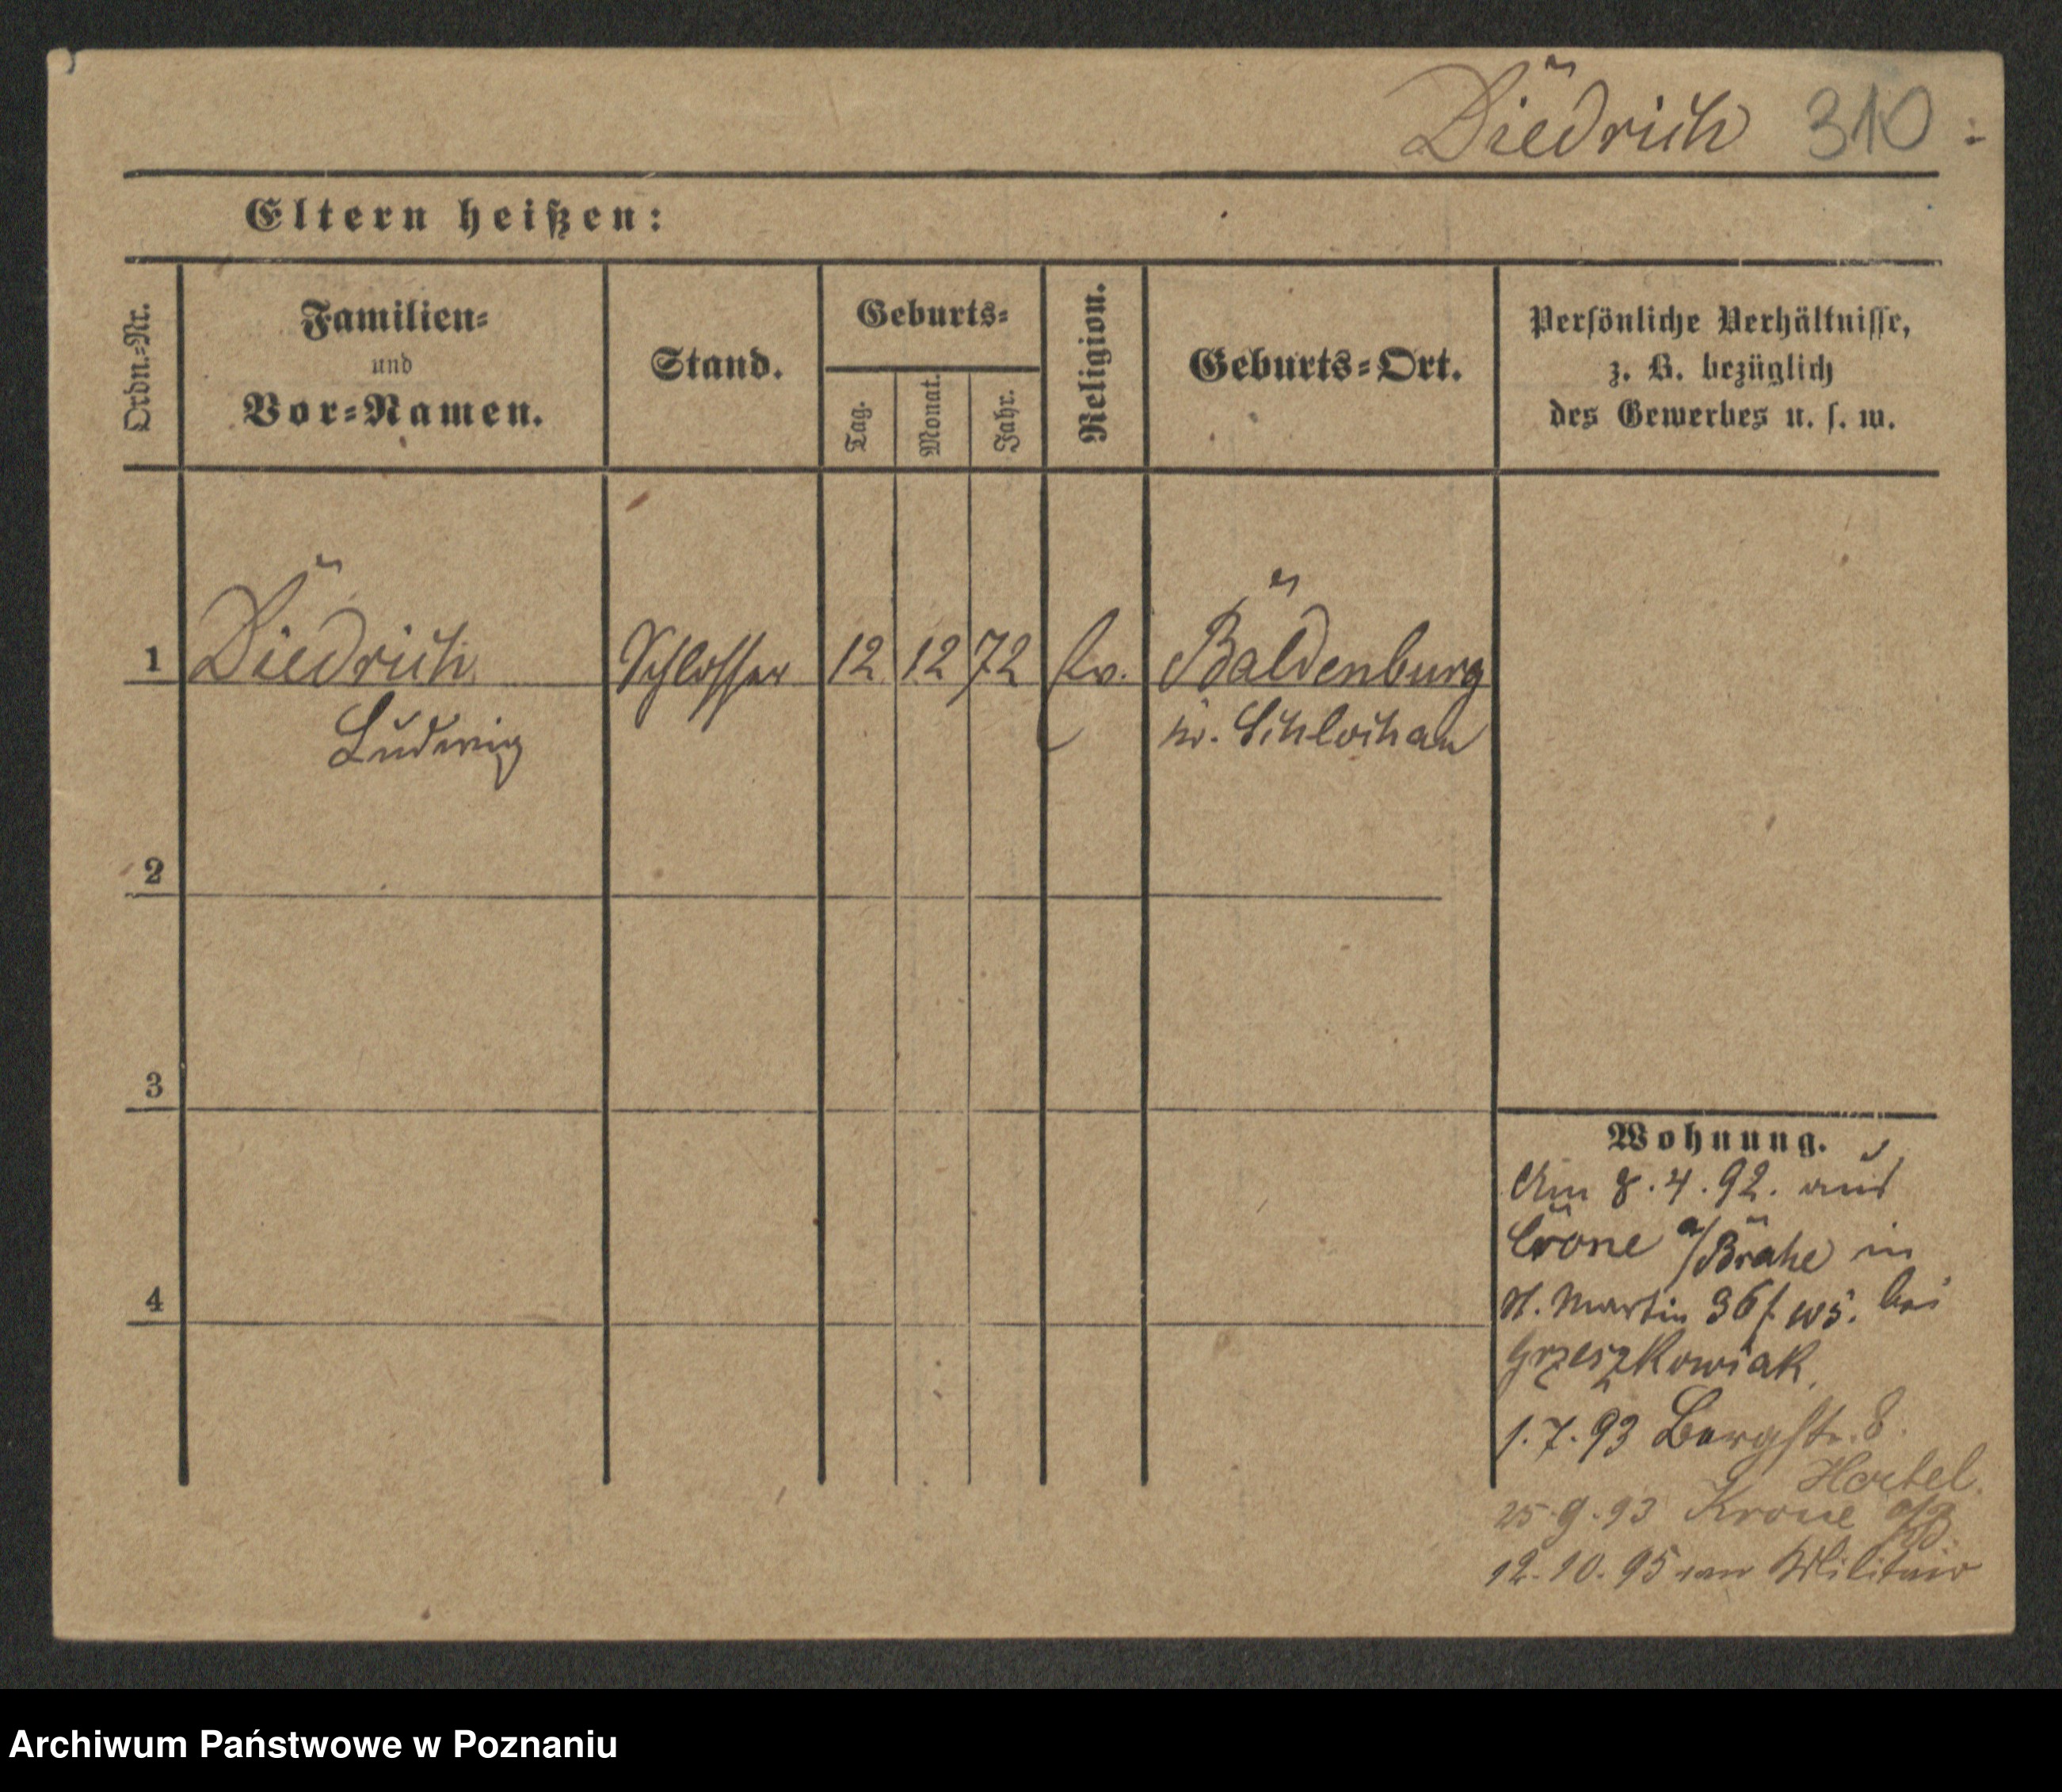 Diedrich 310
Eltern heißen:
Ordn.=Nr.
Familien=
und
Vor=Namen.
Stand.
Geburts=
Tag.
Monat.
Jahr.
Religion.
Geburts=Ort.
Persönliche Verhältnisse,
z. B. bezüglich
des Gewerbes u. s. w.
1 Diedrich Schlosser 12 12 72 Ev. Baldenburg
Ludwig Kr. Schlochau
2
3
4
Wohnung.
Am 8.4.92. aus
Crone a/Brahe in
St. Martin 36 bei
Grzeszkowiak,
1.7.93 Bergstr. 8.
Hertel.
25.9.93 Krone a/B.
12.10.95 zum Militair
Archiwum Państwowe w Poznaniu